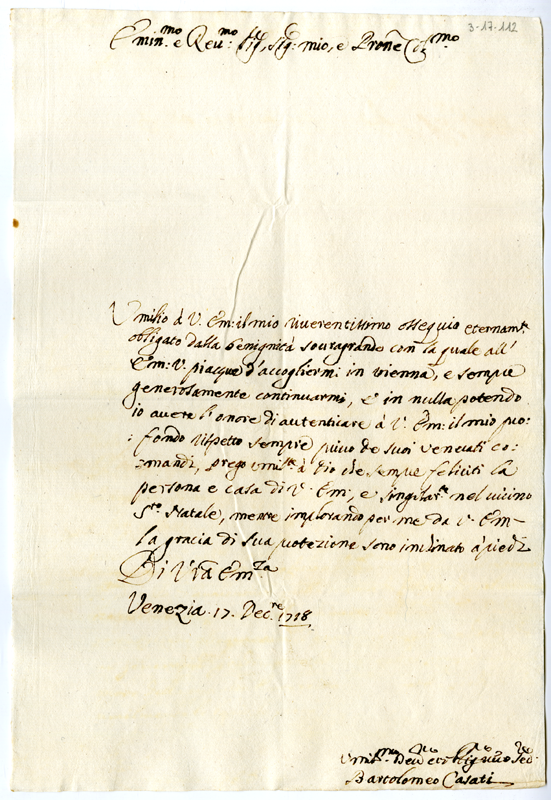 3-17-112
Emin.mo e Rev:mo Sig, Sig: mio, e Prone Col.mo
Umilio à V. Em: il mio riverentissimo ossequio eternam.te
obligato dalla benignità souragrande con la quale all'
Em: V. piacque d'accogliermi in Vienna, e sempre
generosamente continuarmi, e in nulla potendo
io avere l'onore di autenticare à V. Em: il mio pro:
:fondo rispetto sempre privo de suoi venerati co:
:mandi, prego umil.te à Dio che sempre feliciti la
persona e casa di V. Em:, e singolar.te nel vicino
S.to Natale, mentre implorando per me da V. Em:
la gracia di sua protezione sono inclinato à piedi
Di V.ra Em.za
Venezia. 17. Dec.re 1718.
Umil.mo Dev.mo et Obligat.mo Ser.
Bartolomeo Casati